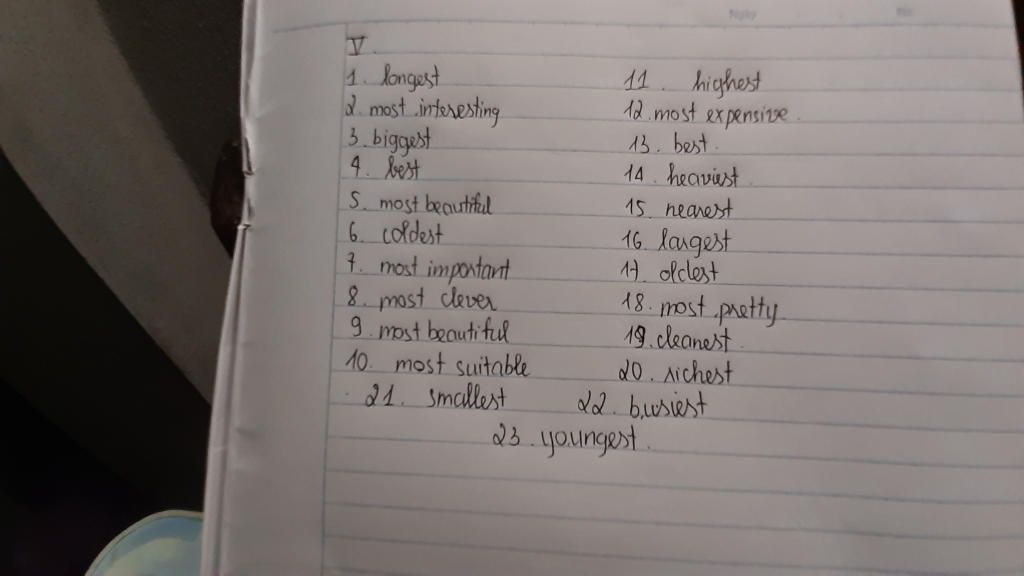 V.
1. longest
2. most interesting
3. biggest
4. best
5. most beautiful
6. coldest
7. most important
8. most clever
9. most beautiful
10. most suitable
11. highest
12. most expensive.
13. best.
14. heaviest.
15. nearest
16. largest
17. oldest
18. most pretty
19. cleanest.
20. richest
21. smallest
22. busiest
23. youngest.